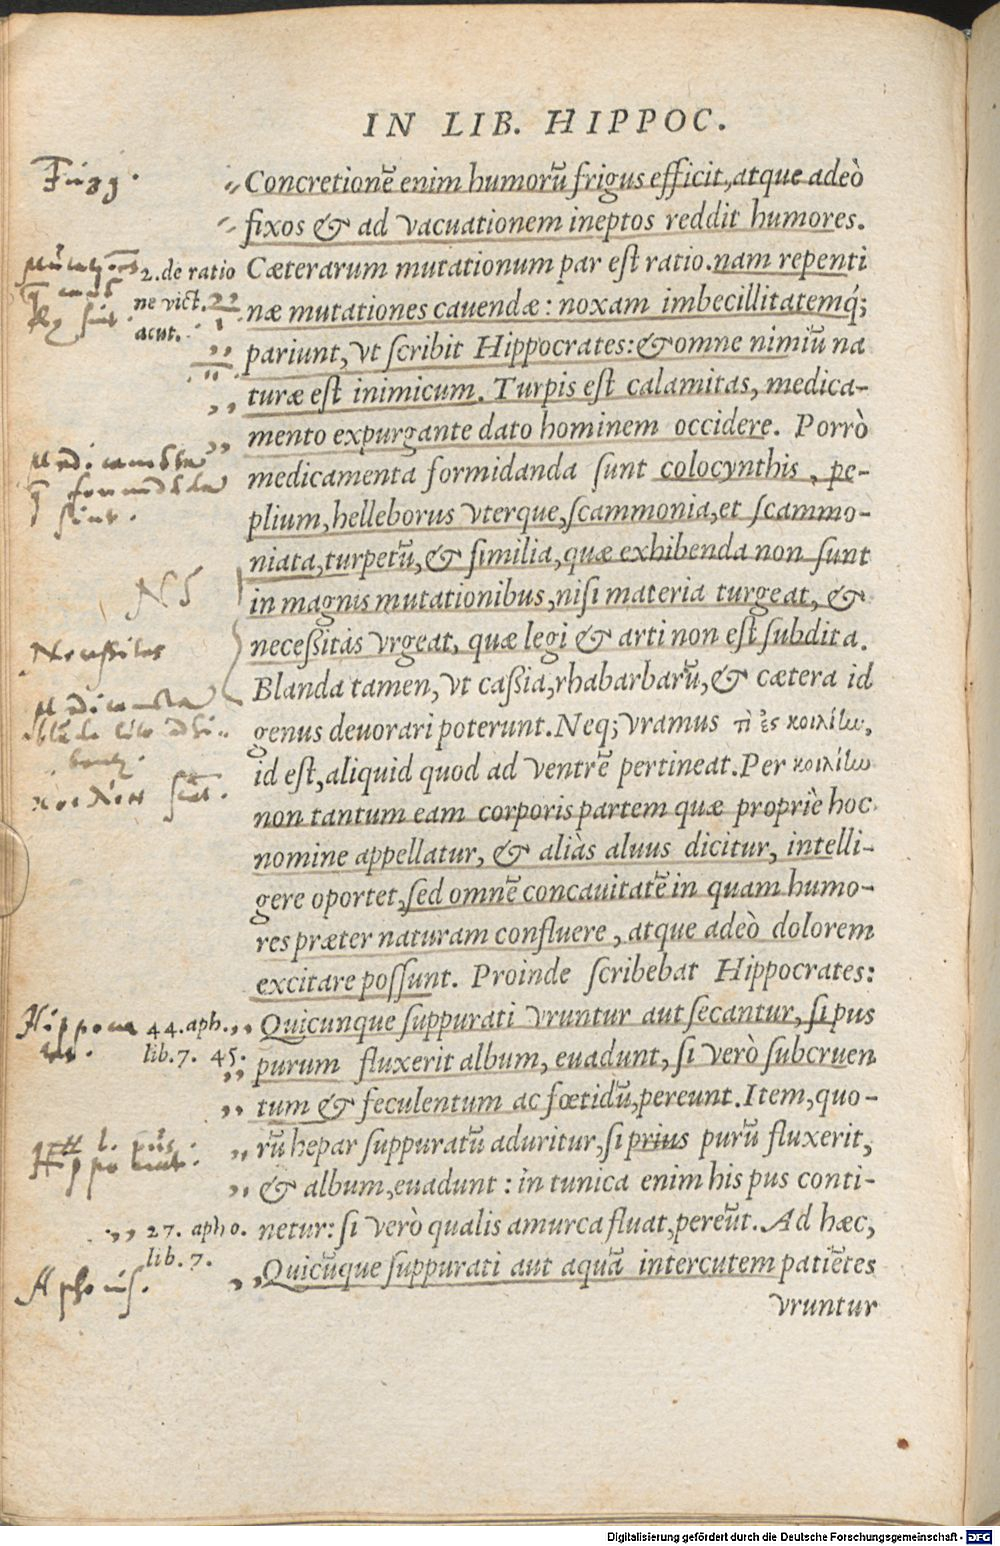 IN LIB. HIPPOC.
Concretionē enim humorū frigus efficit, atque adeò
fixos & ad vacuationem ineptos reddit humores.
2. de ratio Cæterarum mutationum par est ratio. nam repenti
ne vict. næ mutationes cavendæ: noxam imbecillitatemq́;
acut. pariunt, vt scribit Hippocrates: & omne nimiū na
turæ est inimicum. Turpis est calamitas, medica-
mento expurgante dato hominem occidere. Porrò
medicamenta formidanda sunt colocynthis, pe-
plium, helleborus vterque, scammonia, et scammo-
niata, turpetū, & similia, quæ exhibenda non sunt
in magnis mutationibus, nisi materia turgeat, &
Necessitas necessitas vrgeat, quæ legi & arti non est subdita.
Blanda tamen, vt cassia, rhabarbarū, & cætera id
genus deuorari poterunt. Neq; vramus τὶ ἐς κοιλίω,
id est, aliquid quod ad ventrē pertineat. Per κοιλίω
non tantum eam corporis partem quæ propriè hoc
nomine appellatur, & aliàs aluus dicitur, intelli-
gere oportet, sed omnē concauitatē in quam humo-
res præter naturam confluere, atque adeò dolorem
excitare possunt. Proinde scribebat Hippocrates:
44. aph. „ Quicunque suppurati vruntur aut secantur, si pus
lib. 7. 45. „ purum fluxerit album, euadunt, si verò subcruen
„ tum & feculentum ac fœtidū, pereunt. Item, quo-
„ rū hepar suppuratū aduritur, si prius purū fluxerit,
„ & album, euadunt: in tunica enim his pus conti-
„ 27. apho. netur: si verò qualis amurca fluat, pereūt. Ad hæc,
lib. 7. „ Quicūque suppurati aut aquā intercutem patiētes
vruntur
Digitalisierung gefördert durch die Deutsche Forschungsgemeinschaft - DFG